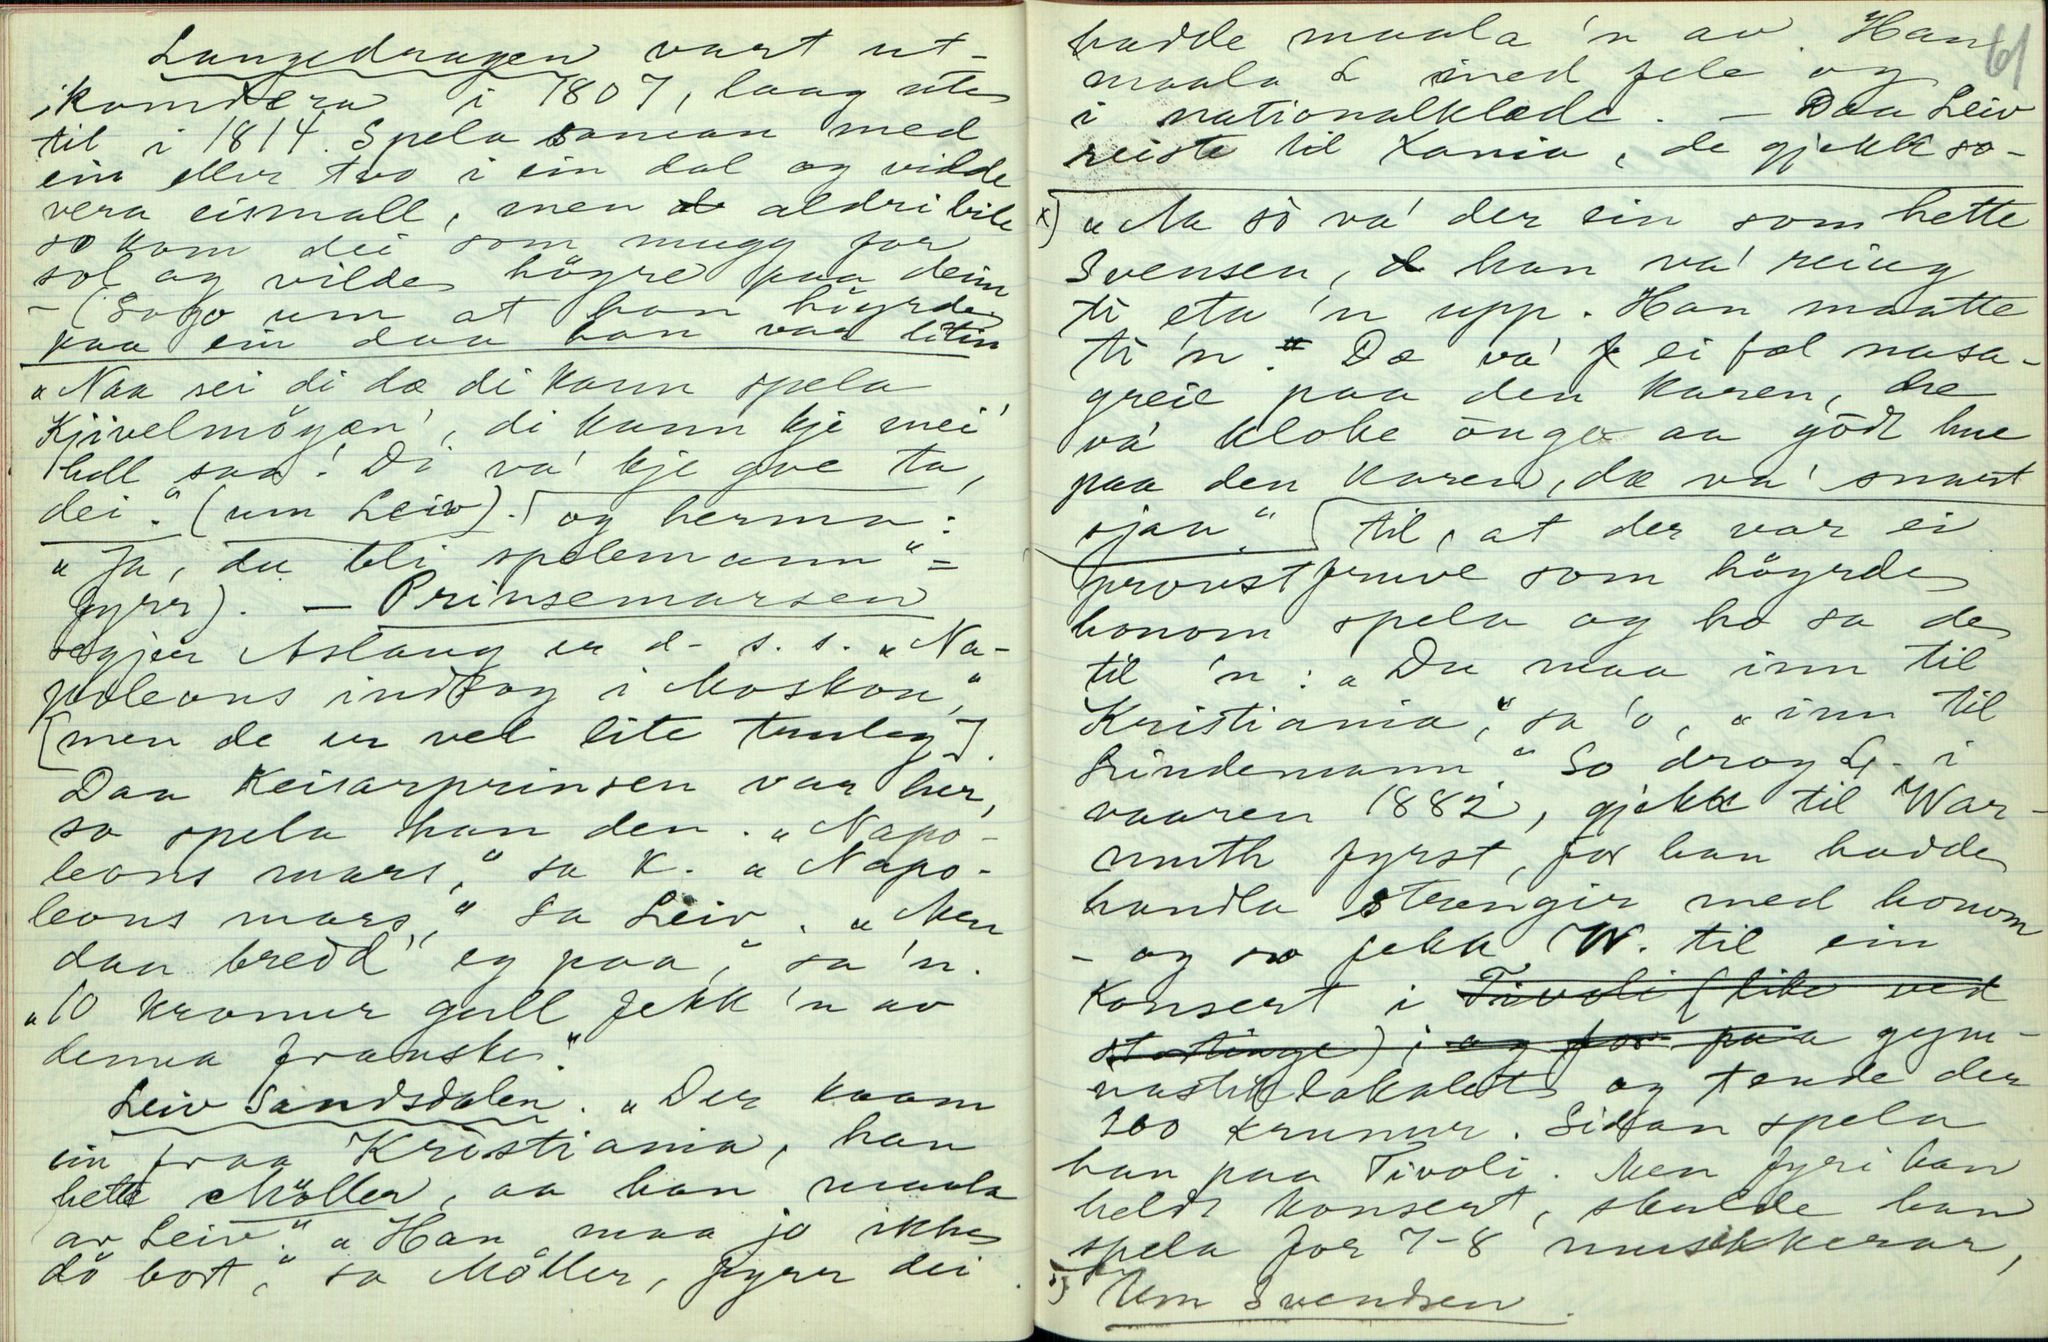 Langedragen vart ut-
komdera i 1807, laag ute
til i 1814. Spela saman med
ein eller tvo i ein dal og vilde
vera eismall, men aldri bile
so kom dei som mugg for
sol og vilde högre paa deim
- (Sogo um at han höyrde
paa ein daa han var litin
"Naa sei di dæ di kann spela
Kjivelmöyæn', di kann kje mei'
hell saa! Di va' kje gve ta,
dei." (um Leiv). og herma:
"Ja, du bli spelemann" =
fyrr). - Prinsemarsen
segjer Aslaug er d. s. s. "Na-
poleons indtog i Moskou,"
[men de er vel lite truleg].
Daa Keisarprinsen var her,
so spela han den. "Napo-
leons mars," sa K. "Napo-
leons mars," sa Leiv. "Men
dan bredd' eg paa," sa 'n.
"10 kronur gull fekk 'n av
denna franske."
Leiv Sandsdalen. "Der kaam
ein fraa Kristiania, han
hette Möller, aa han maala
av Leiv." "Han maa jo ikke
dö bort," sa Möller, fyrr dei
61
hadde maala 'n av. Han
maala L med fele og
i nationalklæde. - Daa Leiv
reiste til Xania, de gjekk so-
x) "Na so va' der ein som hette
Svensen, han va' reiug
ti eta 'n upp. Han maatte
ti 'n. Dæ va' ei fæl nasa-
greie paa den karen, dæ
va' kloke önge aa gödt hue
paa den karen, dæ va' snart
sjaa." til, at der var ei
proustfruve som höyrde
honom spela og ho sa de
til 'n: "Du maa inn til
Kristiania," sa 'o, "inn til
Lindemann." So drog L. i
vaaren 1882, gjekk til War-
muth fyrst, for han hadde
handla strengir med honom
- og so fekk W. til ein
Konsert i Tivoli (like ved
stortinge) i og for paa gym-
nastiklokalet og tende der
200 krunur. Sidan spela
han paa Tivoli. Men fyri han
heldt konsert, skulde han
spela for 7-8 musikkerar,
x) Um Svendsen.